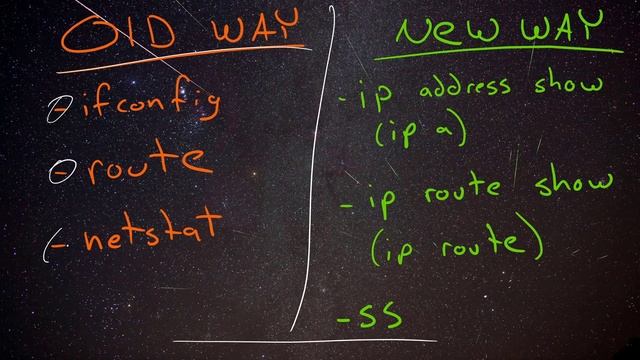 OlD WAY
- ifconfig
- route
- netstat
NEW WAY
- ip address show
(ip a)
- ip route show
(ip route)
- ss